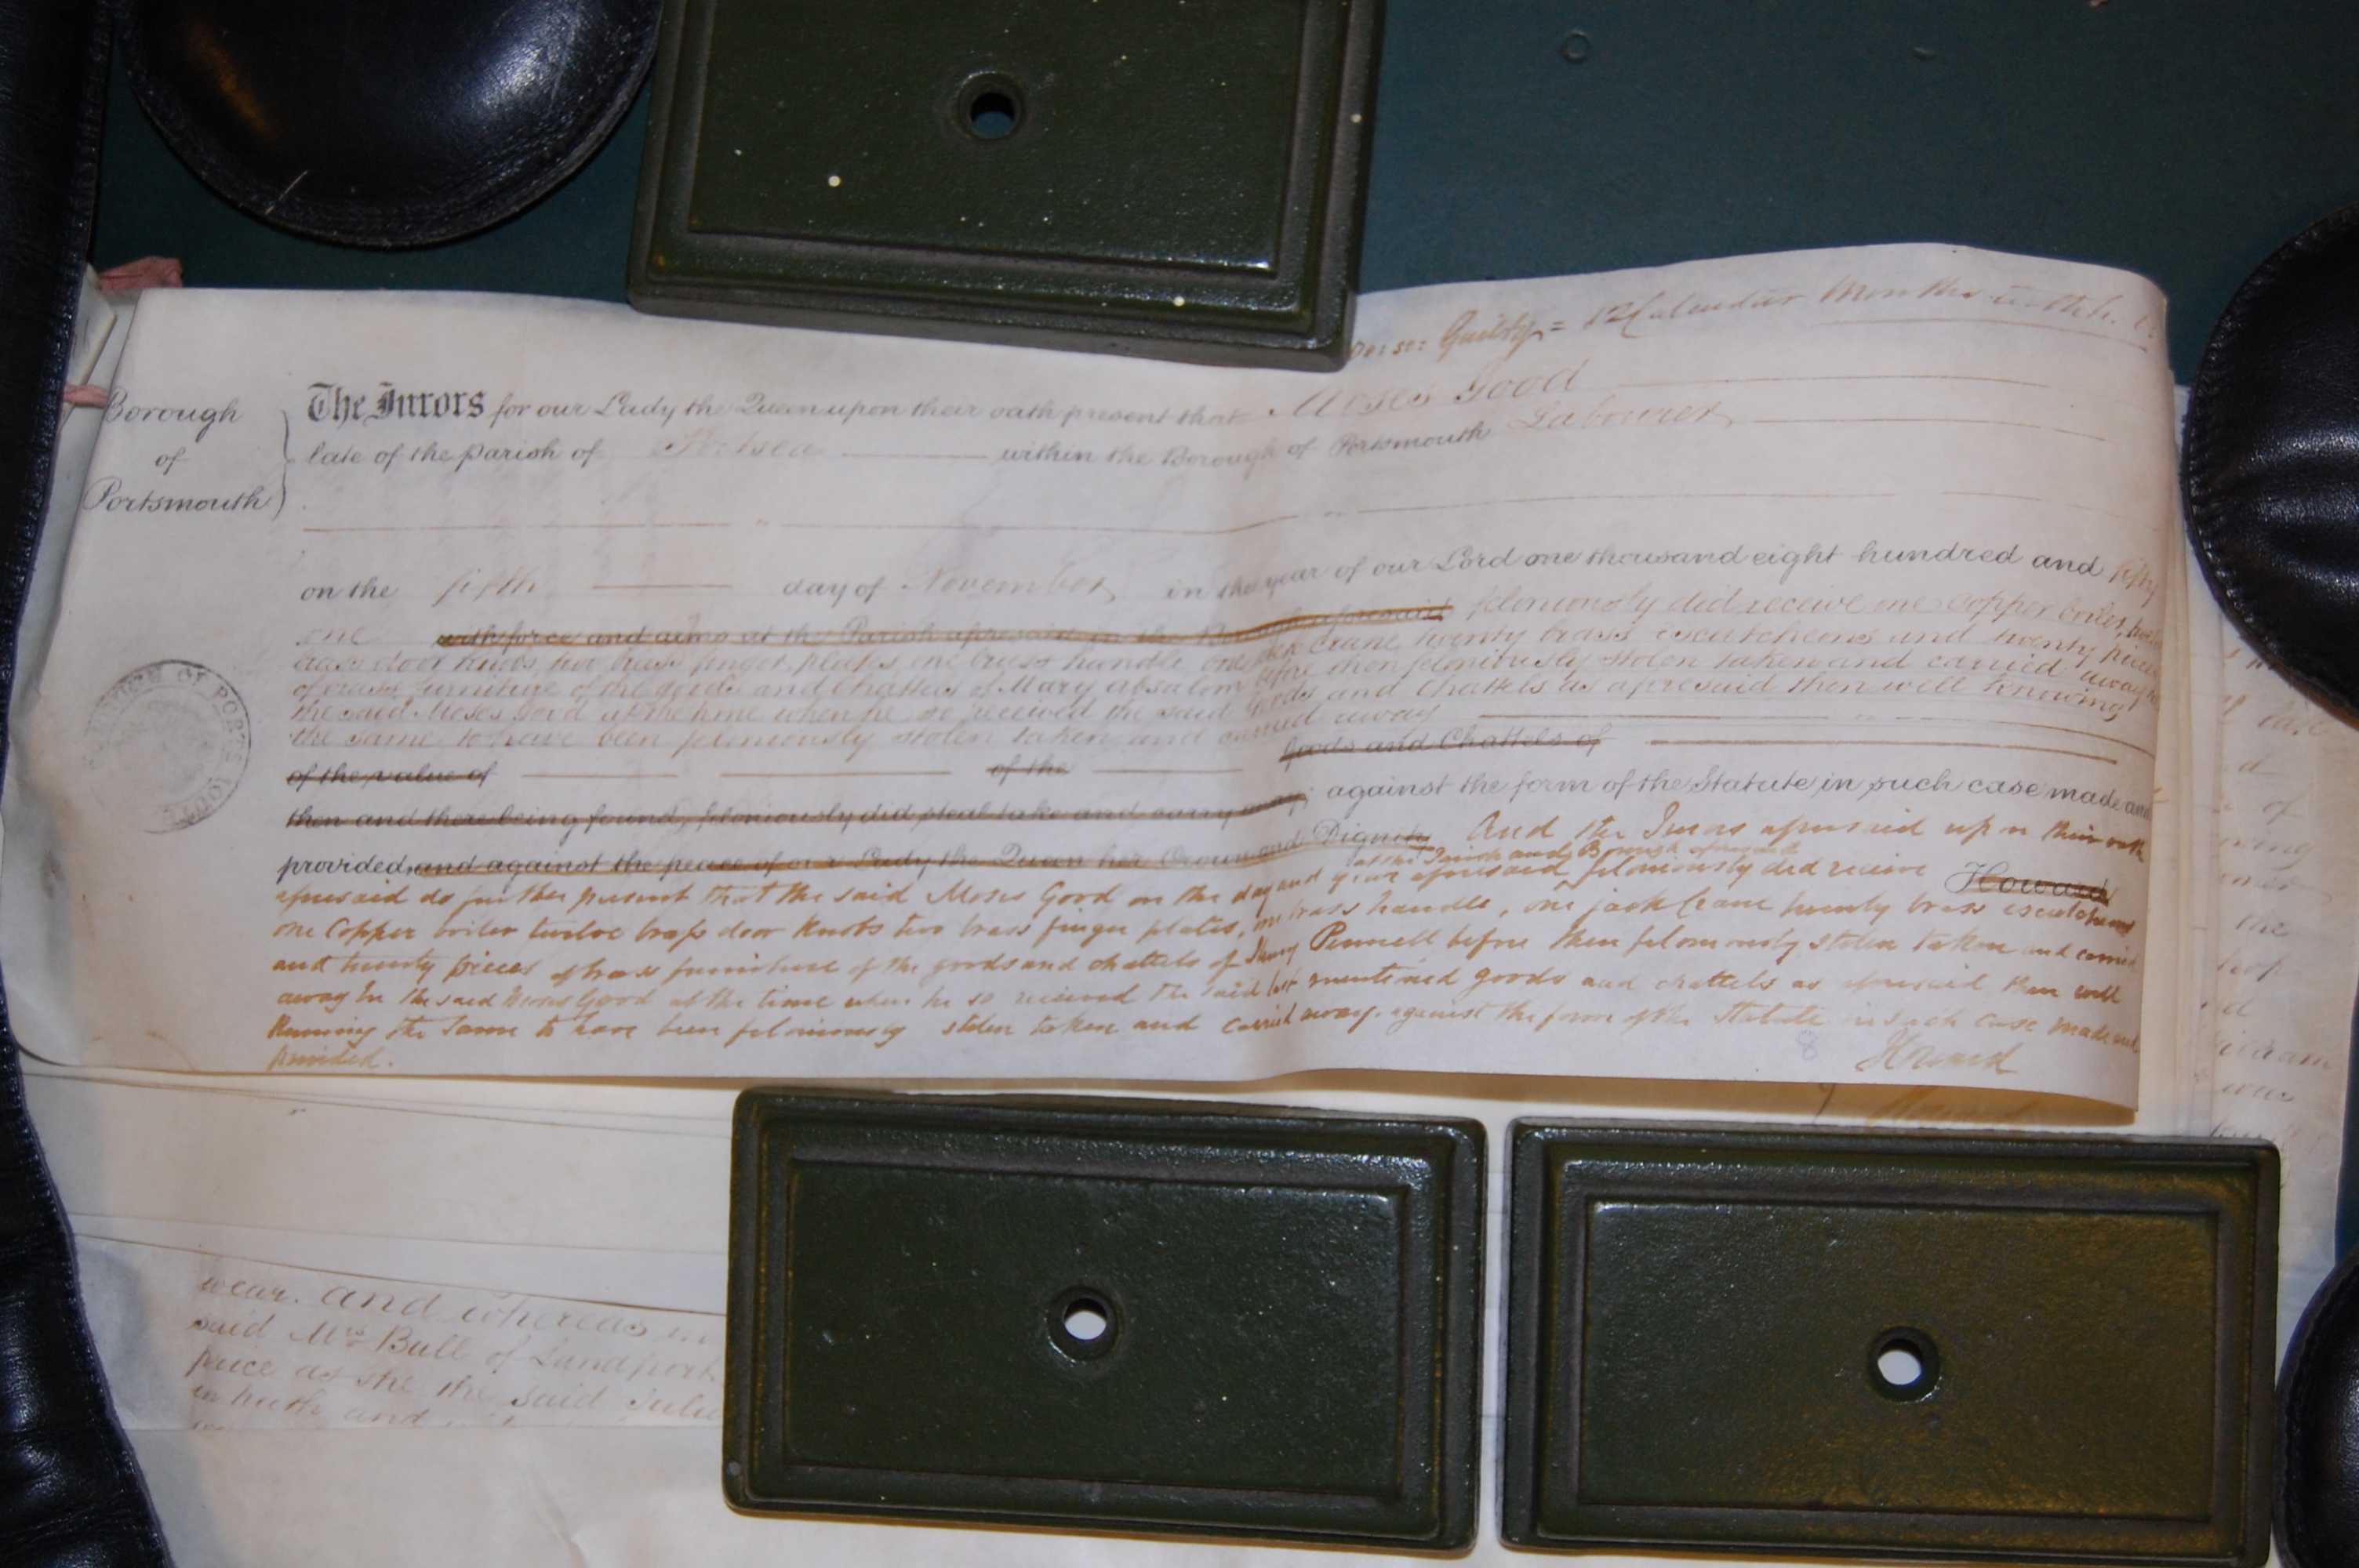 Guilty = 12 Calendar Months
Borough
of
Portsmouth
The Jurors for our Lady the Queen upon their oath present that Moses Good
late of the Parish of Portsea within the Borough of Portsmouth Labourer
on the fifth day of November in the year of our Lord one thousand eight hundred and fifty
one with force and arms at the Parish aforesaid in the Borough aforesaid feloniously did receive one Copper boiler,
brass door knobs two brass finger plates one brass handle one Jack Crane twenty brass escutcheons and twenty pieces
of brass furniture of the goods and Chattels of Mary Absalom before then feloniously stolen taken and carried away he
the said Moses Good at the time when he so received the said Goods and Chattels as aforesaid then well knowing
the same to have been feloniously stolen taken and carried away
of the value of of the Goods and Chattels of
then and there being found, feloniously did steal take and carry away; against the form of the Statute in such case made and
provided, and against the peace of our Lady the Queen her Crown and Dignity And the Jurors aforesaid upon their oath
at the Parish and Borough aforesaid
aforesaid do further present that the said Moses Good on the day and year aforesaid feloniously did receive Howard
one Copper boiler twelve brass door Knobs two brass finger plates, one brass handle, one jack Crane twenty brass escutcheons
and twenty pieces of brass furniture of the goods and chattels of Henry Pennell before then feloniously stolen taken and carried
away he the said Moses Good at the time when he so received the said last mentioned goods and chattels as aforesaid then well
knowing the same to have been feloniously stolen taken and carried away. against the form of the Statute in such case made and
provided.
Howard
8
wear. and whereas in
said Mrs Bull of Landport
price as she the said Julia
in truth and